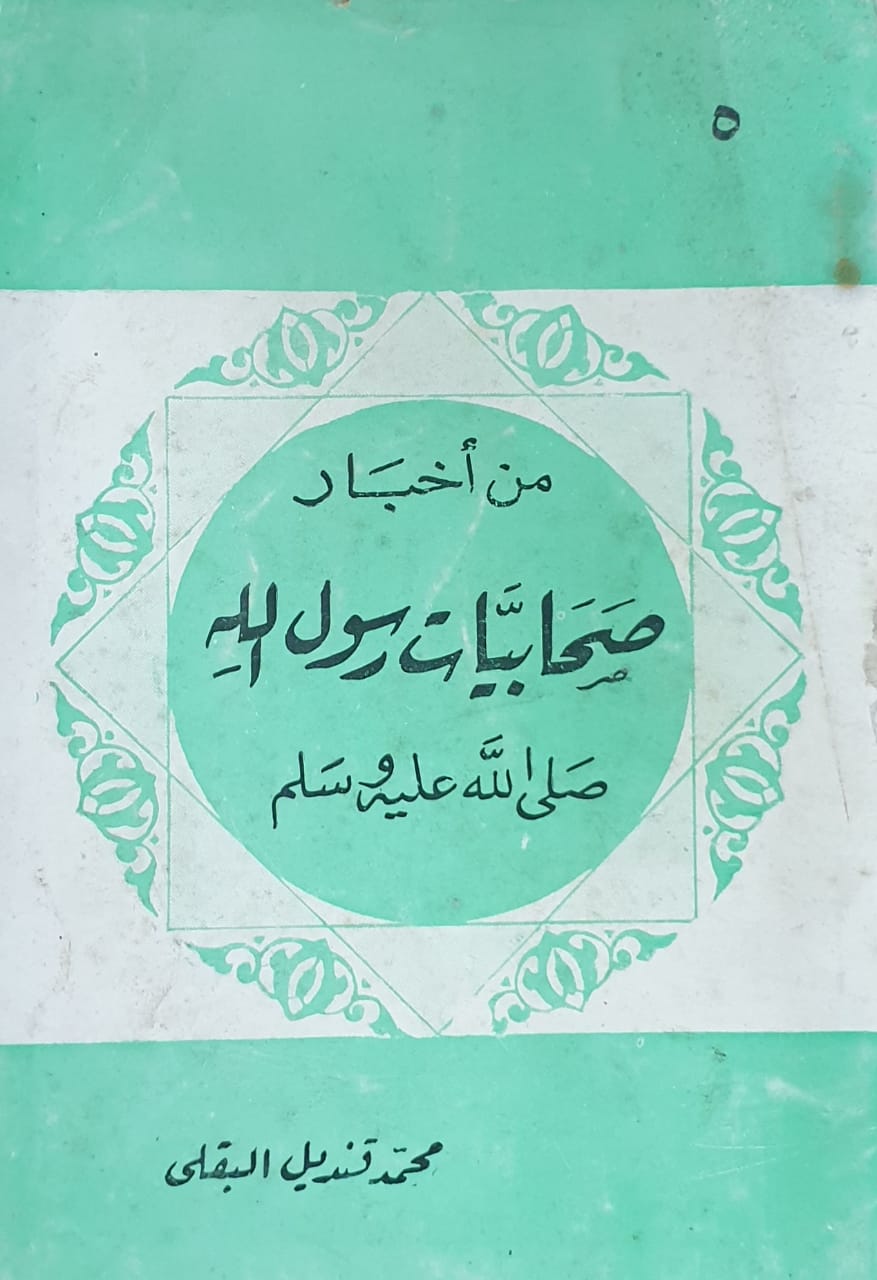 ٥
من أخبار
صَحَابيَّات رسول اللهِ
صَلى اللَّه عليه وسَلم
محمّد قنديل البقلى